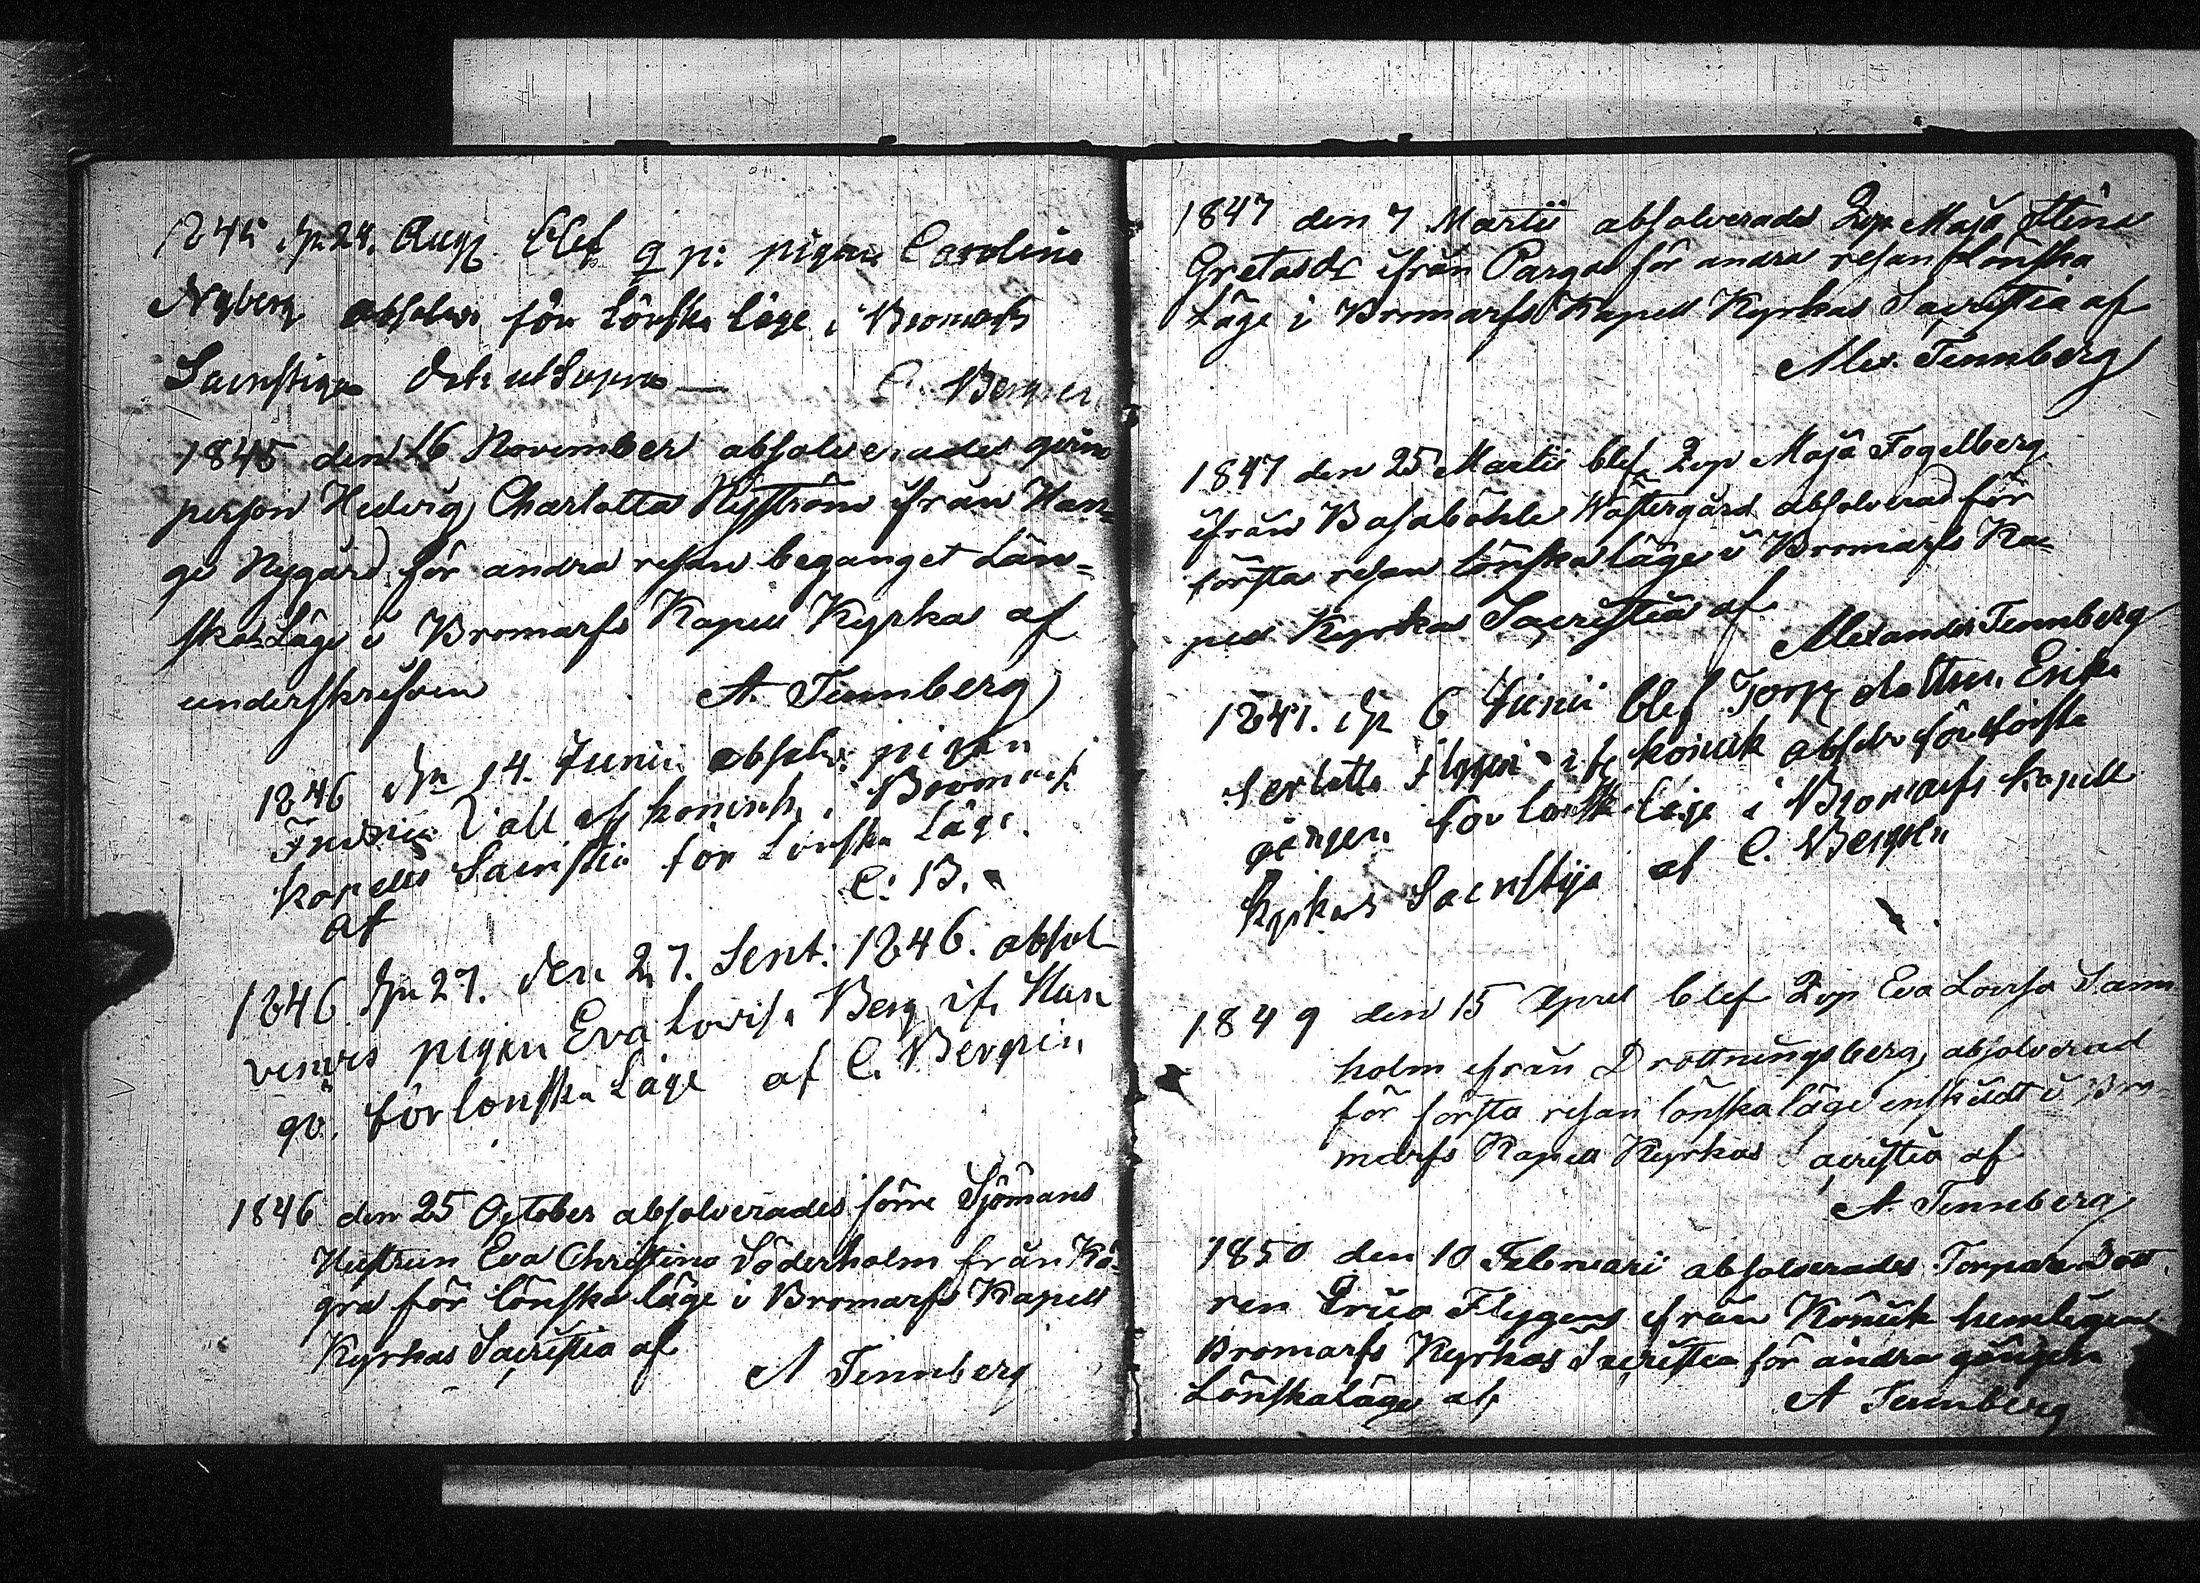 1845 dn 24. Aug. blef q p: pigan Carolina
Nyberg absolv: för Lönska läge i Bromarfs
Sacristiga dato ut Supra — C. Bergen
1845 den 16 November absolverades qvins
person Hedvig Charlotta Nyström ifrån Han=
gö Nygård för andra resan begånget Län=
ska Läge i Bromarfs Kapell Kyrka af
underskrifven A. Tennberg
1846 dn 14. Junii absolv: pigan
Vall af Könick i Bromarf
Kapells Sacristia för Lönska Läge.
af C: B.
1846 dn 27. den 27. Sept: 1846. absol
veras pigan Eva Lovisa Berg if. Han
gö. för lönska Läge af C. Bergen
1846 den 25 October absolverades förre Sjömans
Hustrun Eva Christina Söderholm från Kå=
gra för lönska läge i Bromarfs Kapell
Kyrkas Sacristia af
A Tennberg
1847 den 7 Martii absolverades Qvp Maja Stina
Gretasdr ifrån Pargas för andra resan Lönska
Läge i Bromarfs Kapell Kyrkas Sacristia af
Alex. Tennberg
1847 den 25 Martii blef Qvp Maja Fogelberg
ifrån Basaböhle Wästergård absolverad för
första resan Lönska läge i Bromarfs Ka=
pell Kyrkas Sacristia af
Alexander Tennberg
1847. dn 6 Junii blef Torp dottren Erika
Serlotta if Könick absolv för första
gången för lönska läge i Bromarfs Kapell
Kyrkas Sacristija af C. Bergen
1849 den 15 April blef Qvp Eva Lovisa Sann
holm ifrån Drottningsberg absolverad
för första resan lönska läge enskildt i Bro=
marfs Kapell Kyrkas Sacristia af
A. Tennberg
1850 den 10 Februari absolverades Torpare Dott
ren Erica Flygen ifrån Könick hemligen
Bromarfs Kyrkas Sacristia för andra gången
Lönskaläge af A Tennberg